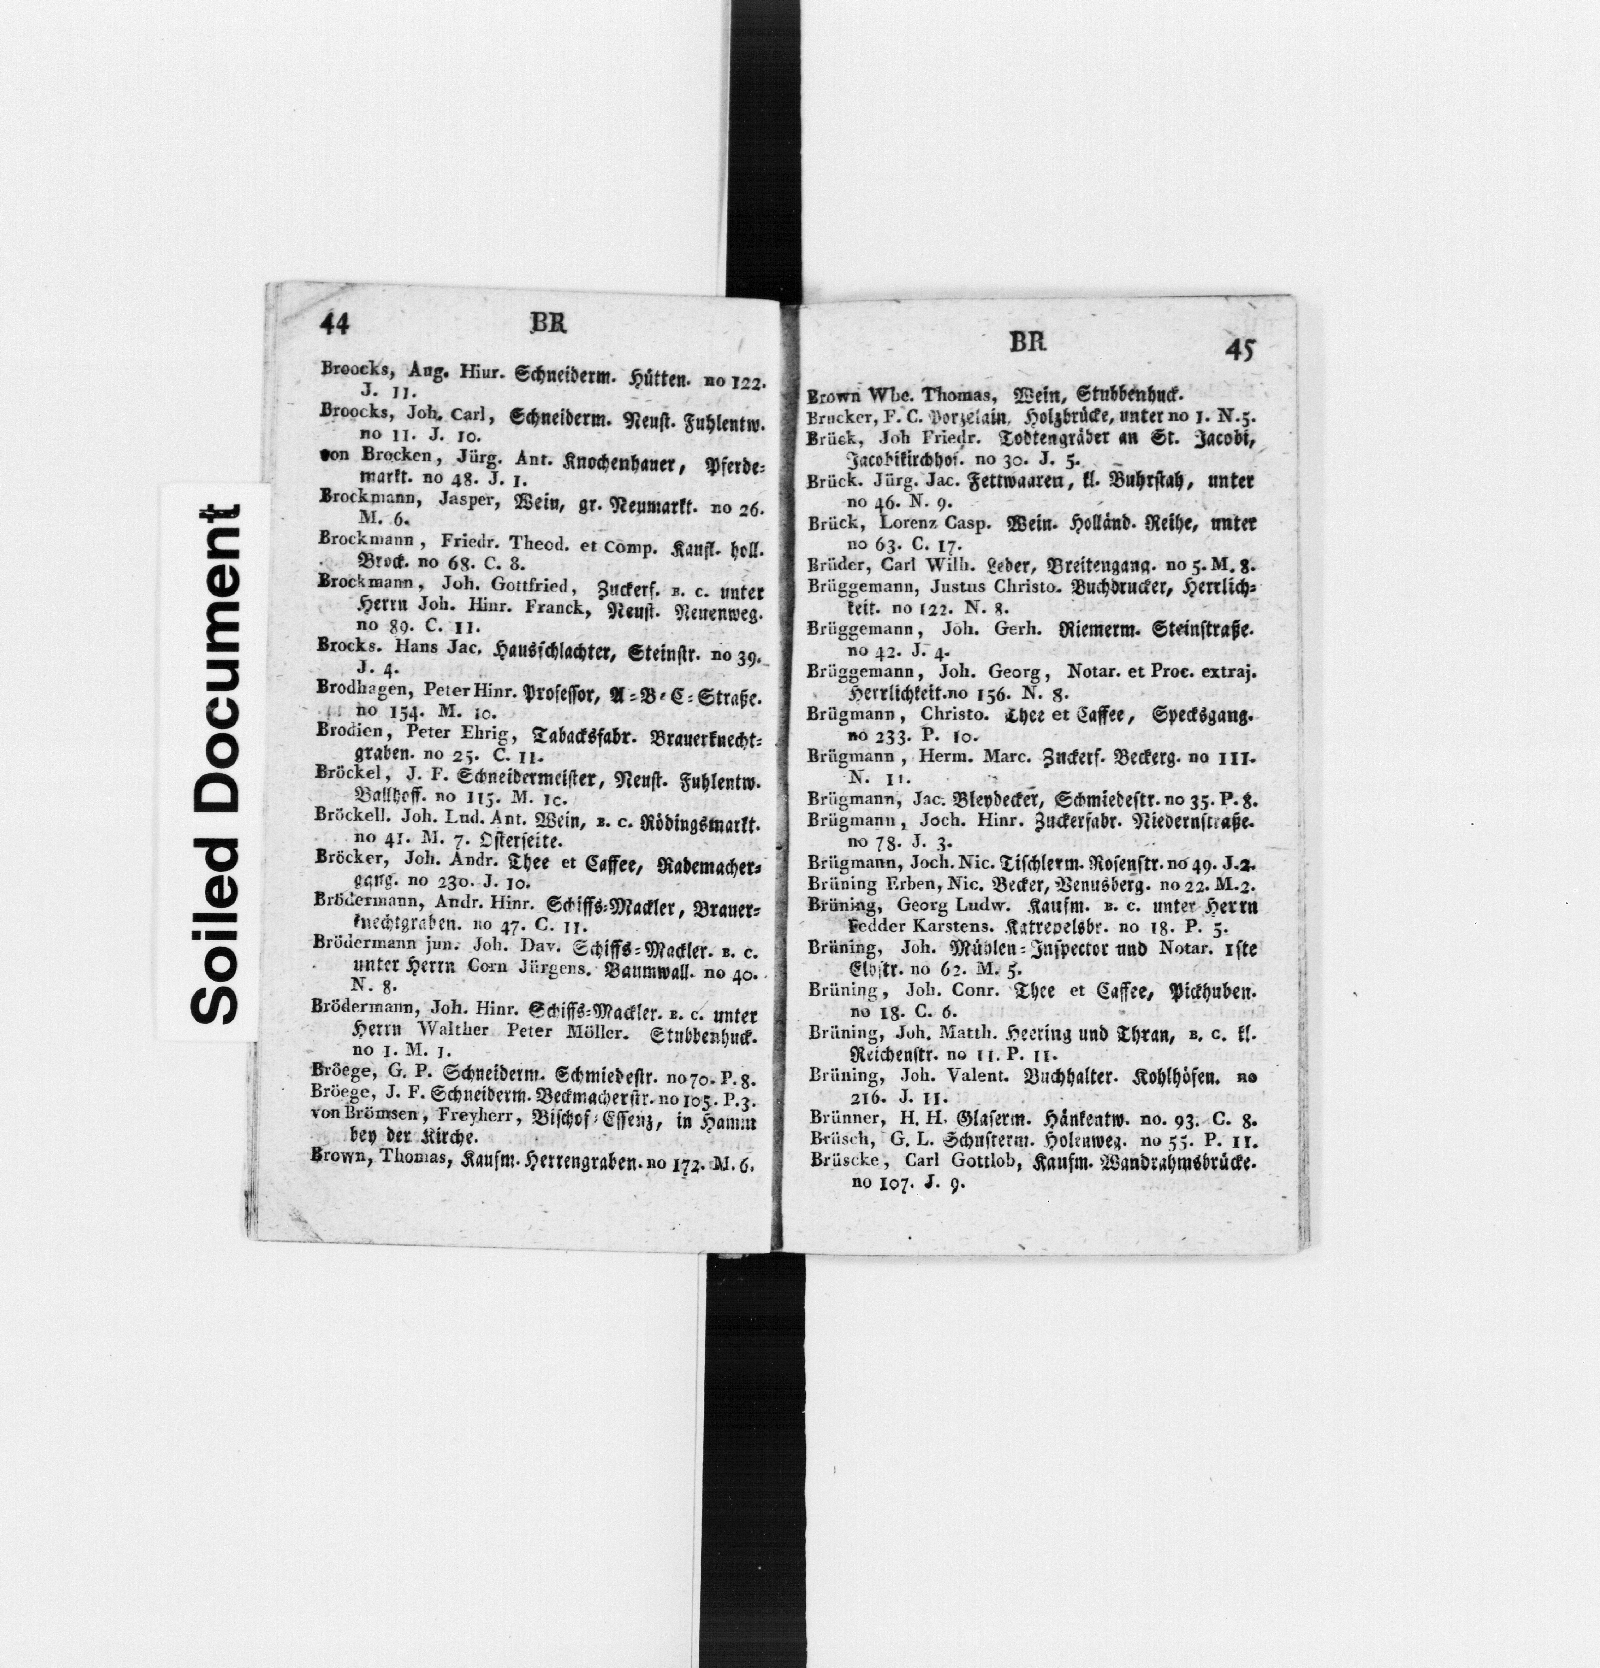 Soiled Document
44
BR
Broocks, Aug. Hinr. Schneiderm. Hütten. no 122.
J. 11.
Broocks, Joh. Carl, Schneiderm. Neust. Fuhlentw.
no 11. J. 10.
von Brocken, Jürg. Ant. Knochenhauer, Pferde=
markt. no 48. J. 1.
Brockmann, Jasper, Wein, gr. Neumarkt. no 26.
M. 6.
Brockmann, Friedr. Theod. et Comp. Kaufl. holl.
Brock. no 68. C. 8.
Brockmann, Joh. Gottfried, Zuckerf. B. C. unter
Herrn Joh. Hinr. Franck, Neust. Neuenweg.
no 89. C. 11.
Brocks. Hans Jac. Hausschlachter, Steinstr. no 39.
J. 4.
Brodhagen, Peter Hinr. Professor, A=B=C=Straße.
no 154. M. 10.
Brodien, Peter Ehrig, Tabacksfabr. Brauerknecht=
graben. no 25. C. 11.
Bröckel, J. F. Schneidermeister, Neust. Fuhlentw.
Ballhoff. no 115. M. 10.
Bröckell. Joh. Lud. Ant. Wein, B. C. Rödingsmarkt.
no 41. M. 7. Osterseite.
Bröcker, Joh. Andr. Thee et Caffee, Rademacher=
gang. no 230. J. 10.
Brödermann, Andr. Hinr. Schiffs=Mackler, Brauer=
knechtgraben. no 47. C. 11.
Brödermann jun. Joh. Dav. Schiffs=Mackler. B. C.
unter Herrn Corn Jürgens. Baumwall. no 40.
N. 8.
Brödermann, Joh. Hinr. Schiffs=Mackler. B. C. unter
Herrn Walther Peter Möller. Stubbenhuck.
no 1. M. 1.
Bröege, G. P. Schneiderm. Schmiedestr. no 70. P. 8.
Bröege, J. F. Schneiderm. Beckmacherstr. no 105. P. 3.
von Brömsen, Freyherr, Bischof=Essenz, in Hamm
bey der Kirche.
Brown, Thomas, Kaufm. Herrengraben. no 172. M. 6.
BR
45
Brown Wbe. Thomas, Wein, Stubbenhuck.
Brucker, F. C. Porzelain, Holzbrücke, unter no 1. N. 5.
Brück, Joh Friedr. Todtengräber an St. Jacobi,
Jacobikirchhof. no 30. J. 5.
Brück. Jürg. Jac. Fettwaaren, kl. Buhrstah, unter
no 46. N. 9.
Brück, Lorenz Casp. Wein. Holländ. Reihe, unter
no 63. C. 17.
Brüder, Carl Wilh. Leder, Breitengang. no 5. M. 8.
Brüggemann, Justus Christo. Buchdrucker, Herrlich=
keit. no 122. N. 8.
Brüggemann, Joh. Gerh. Riemerm. Steinstraße.
no 42. J. 4.
Brüggemann, Joh. Georg, Notar. et Proc. extraj.
Herrlichkeit. no 156. N. 8.
Brügmann, Christo. Thee et Caffee, Specksgang.
no 233. P. 10.
Brügmann, Herm. Marc. Zuckerf. Beckerg. no 111.
N. 11.
Brügmann, Jac. Bleydecker, Schmiedestr. no 35. P. 8.
Brügmann, Joch. Hinr. Zuckerfabr. Niedernstraße.
no 78. J. 3.
Brügmann, Joch. Nic. Tischlerm. Rosenstr. no 49. J. 2.
Brüning Erben, Nic. Becker, Venusberg. no 22. M. 2.
Brüning, Georg Ludw. Kaufm. B. C. unter Herrn
Fedder Karstens. Katrepelsbr. no 18. P. 5.
Brüning, Joh. Mühlen=Inspector und Notar. 1ste
Elbstr. no 62. M. 5.
Brüning, Joh. Conr. Thee et Caffee, Pickhuben.
no 18. C. 6.
Brüning, Joh. Matth. Heering und Thran, B. C. kl.
Reichenstr. no 11. P. 11.
Brüning, Joh. Valent. Buchhalter. Kohlhöfen. no
216. J. 11.
Brünner, H. H. Glaserm. Hänkentw. no. 93. C. 8.
Brüsch, G. L. Schusterm. Holenweg. no 55. P. 11.
Brüscke, Carl Gottlob, Kaufm. Wandrahmsbrücke.
no 107. J. 9.